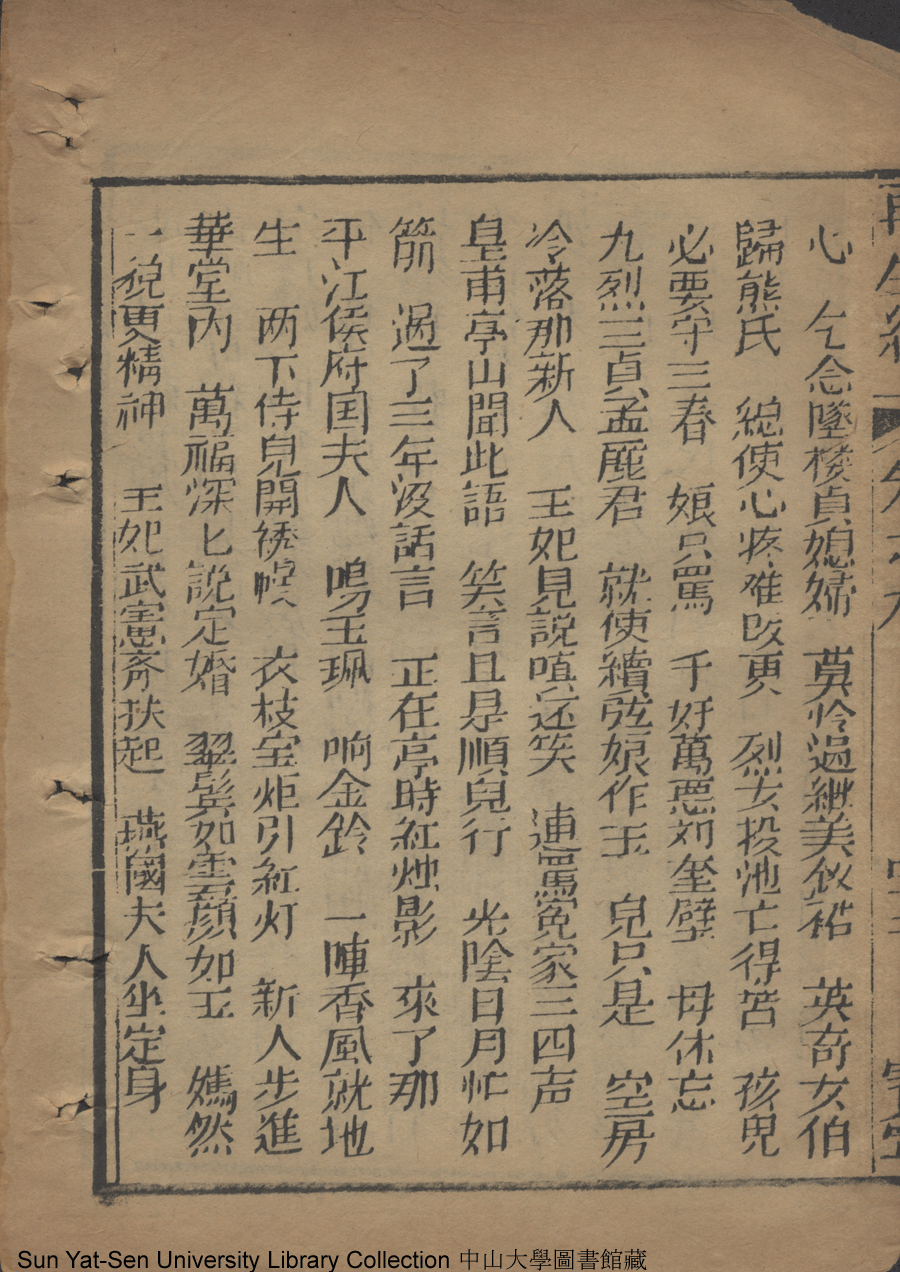 再生緣
心　乞念墜楼貞媳婦　莫怜過継美釵裙　英奇女伯
歸熊氏　総使心疼难改更　烈女投池亡得苦　孩児
必要守三春　娘只罵　千好萬惡刘奎璧　母休忘
九烈三貞孟麗君　就使續弦娘作主　兒只是　空房
冷落那新人　王妃見說嗔还笑　連罵冤家三四声
皇甫亭山聞此語　笑言且是順兒行　光陰日月忙如
箭　過了三年没話言　正在亭時紅烛影　來了那
平江侯府国夫人　鳴玉珮　响金鈴　一陣香風就地
生　两下侍兒開綉幙　衣枝宝炬引紅灯　新人步進
華堂内　萬福深匕說定婚　翠鬓如雲顔如玉　嫣然
一貌更精神　王妃武憲齐扶起　燕國夫人坐定身
Sun Yat-Sen University Library Collection 中山大學圖書館藏